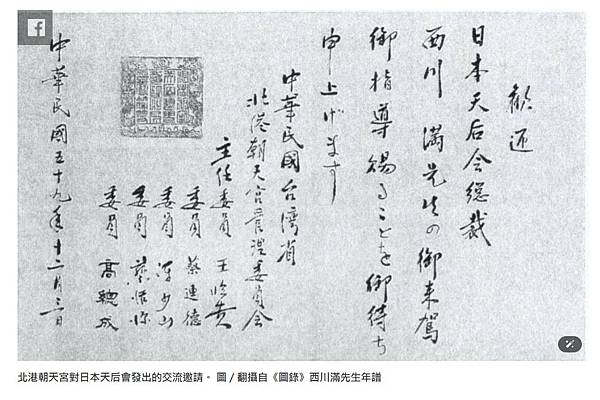 歓迎
日本天后会総裁
西川 満先生の御来駕
御指導賜ることを御待ち
申上げます
中華民國台湾省
北港朝天宮管理委員会
主任委員 王吟貴
委員 蔡連德
委員
委員
委員
中華民國五十九年十二月三日
北港朝天宮對日本天后會發出的交流邀請。 圖／翻攝自《圖錄》西川滿先生年譜